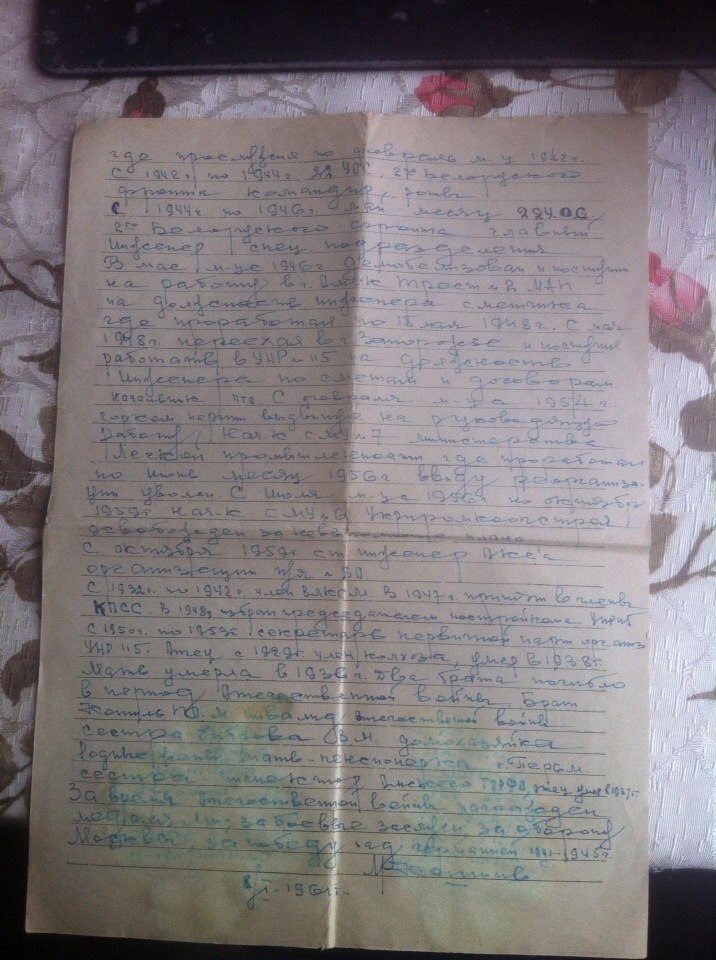 где прослужил по февраль м-ц 1942г.
С 1942г по 1944г. 22 УВС 2го Белорусского
фронта командир роты
С 1944г по 1946г май месяц 224.ОС
2го Белорусского фронта главный
инженер спец подразделения
В мае м-це 1946г. демобелизован и поступил
на работу в г. Трест №2
на должность инженера сметчика
где проработал по 15 мая 1948г. С мая
1948г. переехал в г. Запорожье и поступил
работать в УНР-115 на должность
Инженера по сметам и договорам
начальник пто. С февраля м-ца 1954г
горком партии выдвинут на руководящую
работу, Нач-к СМУ-7 министерства
Легкой промышленности где проработал
по июнь месяц 1956г. ввиду реорганиза-
ции уволен. С Июля м-ца 1956г по октябрь
1959г нач-к СМУ-6 Укрпромсовпотстрой
освобожден за невыполнение плана
С октября 1959г ст. инженер
организации п/я №50
С 1932г. по 1942г. член ВЛКСМ. В 1947г принят в члены
КПСС. В 1948г избран председателем постройкома УНР115
С 1950г. по 1953г. секретарь первичной парт организ
УНР 115. Отец с 1929г. член колхоза, умер в 1938г.
Мать умерла в 1936г. Два брата погибло
в период Отечественной войны. Брат
инвалид отечественной войны
сестра В.М. домохозяйка
Родные жены: мать-пенсионерка г. Пермь.
сестра отец умер в 1937г.
За время отечественной войны награжден
медалями: за боевые заслуги, за оборону
Москвы, за победу над германией 1941-1945г.
I. 1961г.